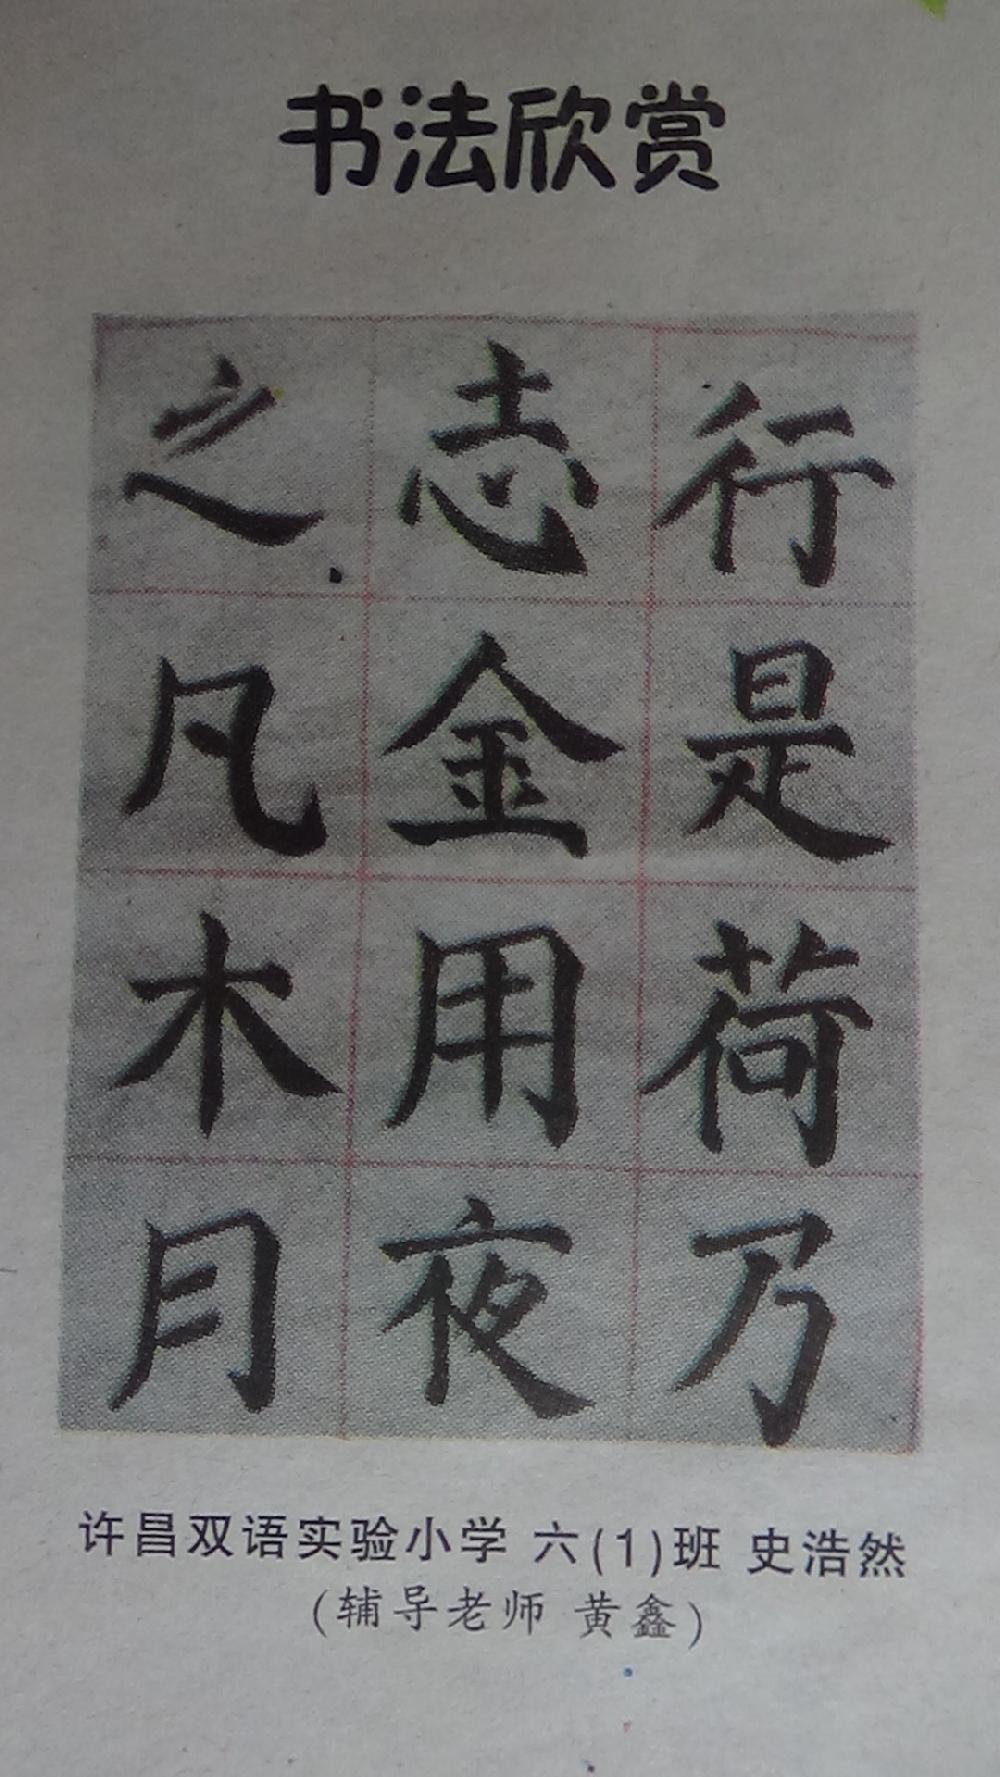 书法欣赏
行是荷乃
志金用夜
之凡木月
许昌双语实验小学 六(1)班 史浩然
(辅导老师 黄鑫)